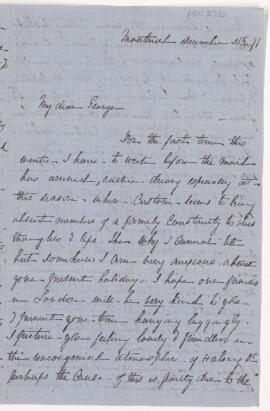 Montreal December 21st/71
My dear George
For the first time this
winter I have to write before the mail
has arrived, rather dreary especially at
this season when Custom seems to bring
absent members of a family constantly to one's
thoughts & lips. Why I cannot
but somehow I am very anxious about
your present holidays. I hope our friends
in London will be very kind to you
I your time hanging laggingly
I picture you feeling lonely &
this uncongenial atmosphere of
perhaps the cause of this is, partly due to the